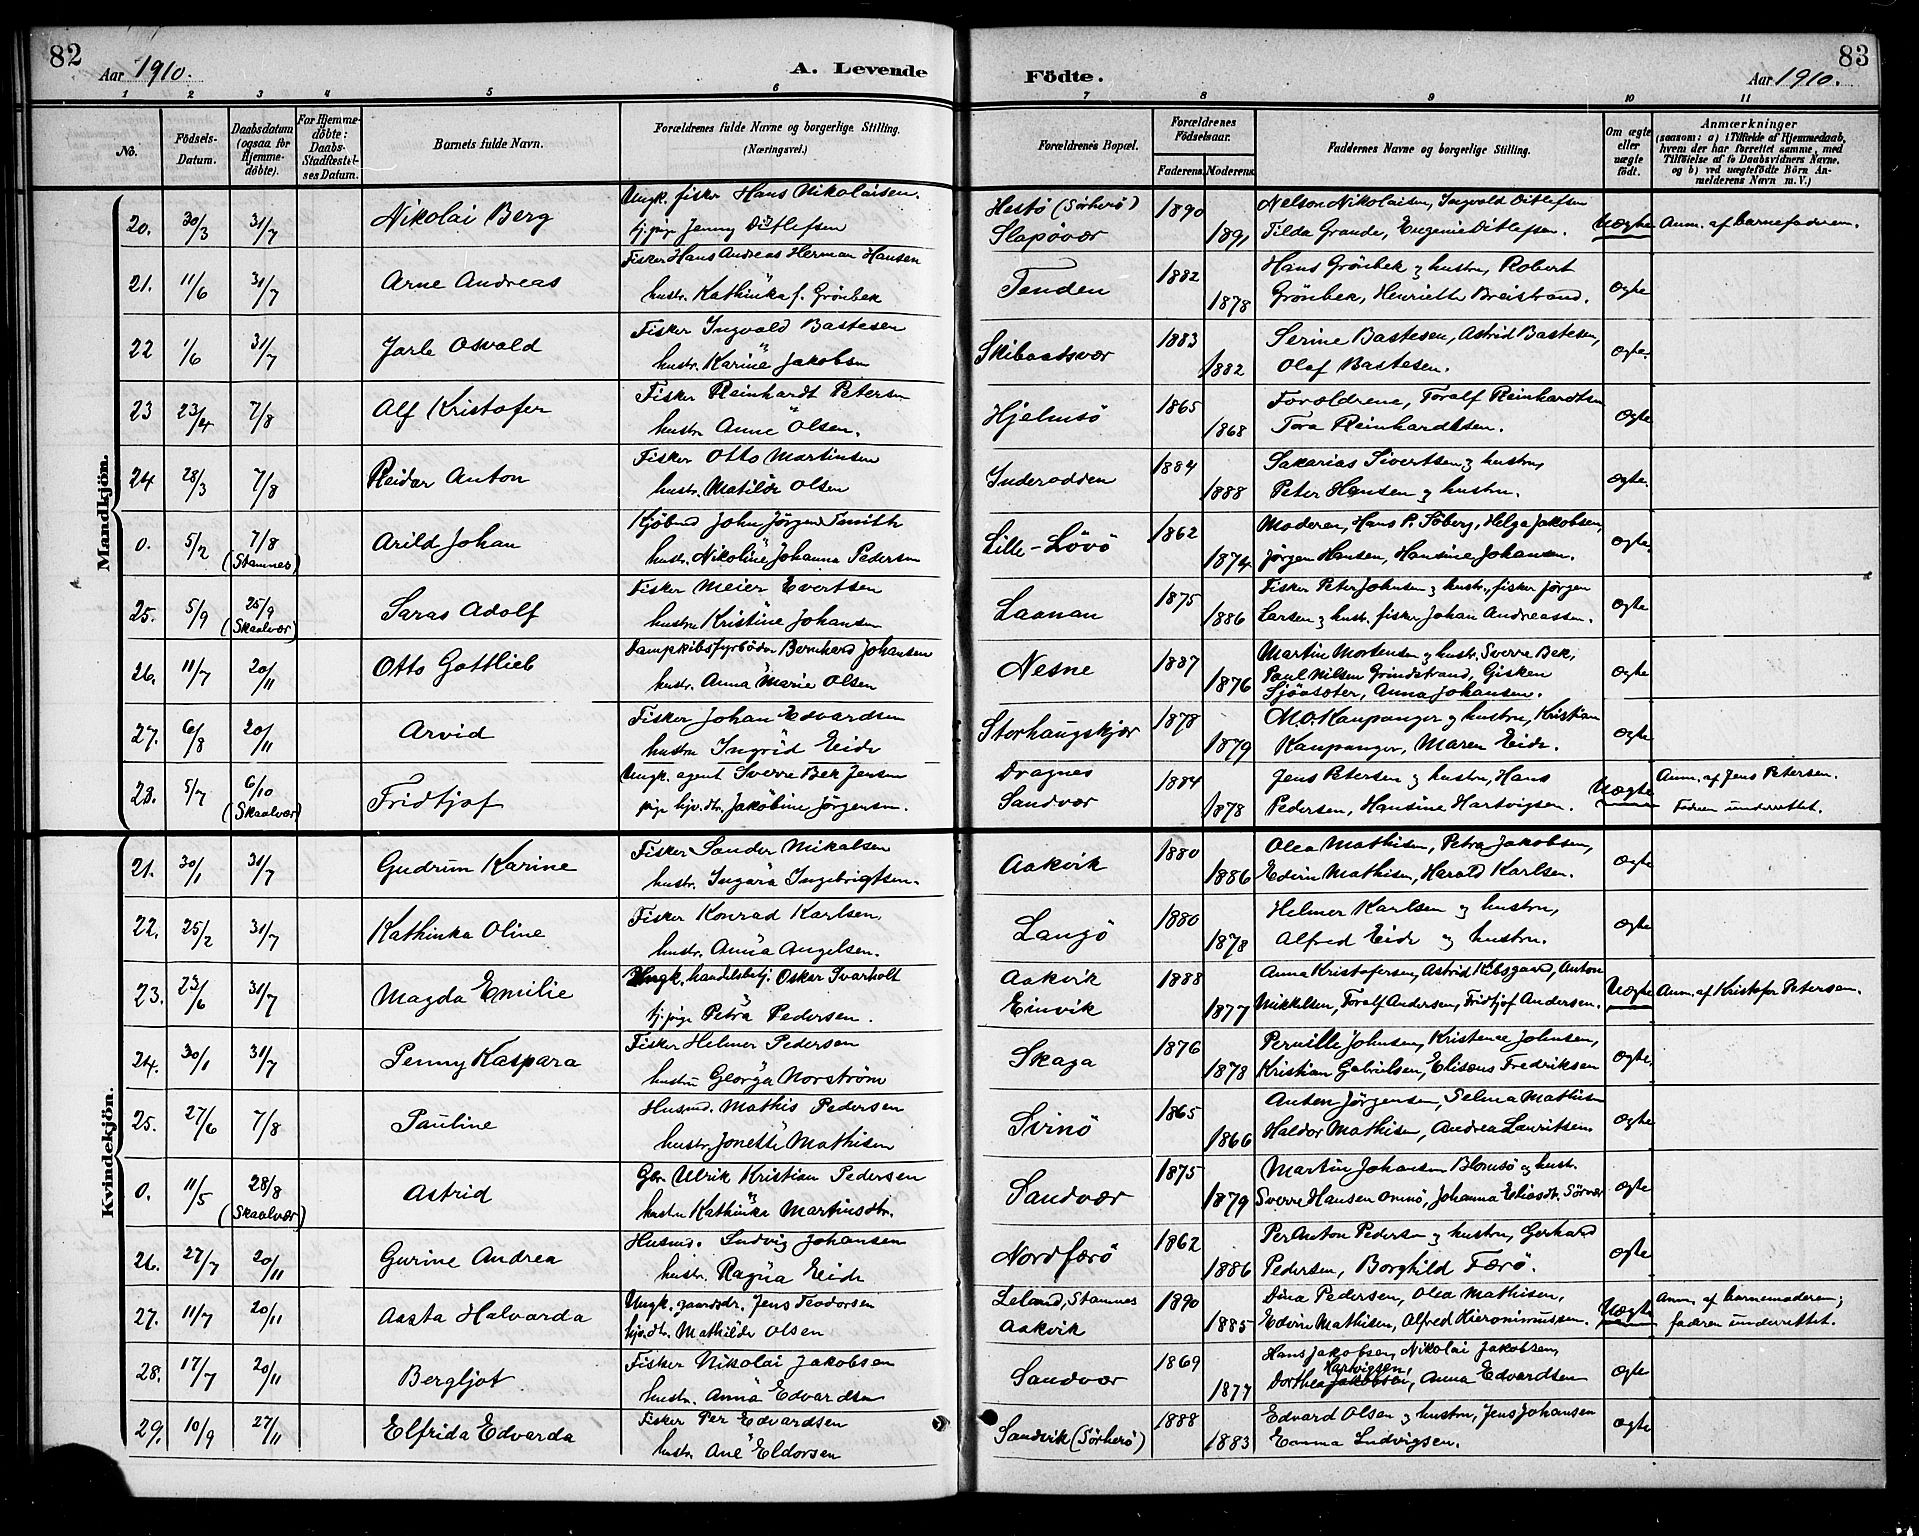 82
Aar 1910.
A. Levende
Födte.
83
Aar 1910.
1 2 3 4 5 6 7 8 9 10 11
No.
Födsels-Datum.
Daabsdatum (ogsaa for Hjemme-döbte).
For Hjemme-döbte: Daabs-Stadfæstel-ses Datum.
Barnets fulde Navn.
Forældrenes fulde Navne og borgerlige Stilling. (Næringsvei.)
Forældrenes Bopæl.
Forældrenes Födselsaar.
Faderens. Moderens.
Faddernes Navne og borgerlige Stilling.
Om ægte eller uægte födt.
Anmærkninger (saasom: a) i Tilfælde af Hjemmedaab, hvem der har forrettet samme, med Tilföielse af to Daabsvidners Navne, og b) ved uægtefödte Börn An-melderens Navn m. V.)
Mandkjön.
20. 30/3 31/7 Nikolai Berg Ungk. fisker Hans Nikolaisen. Hestö (Sörherö) 1890 Nelson Nikolaisen, Ingvald Ditlefsen Uægte Anm. af barnefaderen.
tj. pige Jenny Ditlefsen Slapövær 1891 Tilda Grande, Eugenie Ditlefsen.
21. 11/6 31/7 Arne Andreas Fisker Hans Andreas Herman Hansen Tenden 1882 Hans Grönbek og hustru, Robert ægte
hustr. Kathinka f. Grönbek 1878 Grönbek, Henriette Breistrand.
22 1/6 31/7 Jarle Osvald Fisker Ingvald Bastesen Skibaatsvær 1883 Serine Bastesen, Astrid Bastesen, ægte.
hustr. Karine Jakobsen 1882 Olaf Bastesen.
23 23/4 7/8 Alf Kristofer Fisker Reinhardt Petersen Hjelmsö 1865 Forældrene, Toralf Reinhardtsen ægte
hustru Anne Olsen. 1868 Tora Reinhardtsen.
24 28/3 7/8 Reidar Anton Fisker Otto Martinsen Inderodden 1884 Sakarias Sivertsen og hustru, ægte.
hustr. Matilde Olsen 1888 Peter Hansen og hustru.
0. 5/2 7/8 (Stamnes) Arild Johan Kjöbmd John Jörgen Smith Lille-Lövö 1862 Moderen, Hans P. Söberg, Helga Jakobsen, ægte.
hustr. Nikoline Johanna Pedersen 1874 Jörgen Hansen, Hansine Johansen.
25. 5/9 25/9 (Skaalvær) Saras Adolf Fisker Meier Evertsen Laanan 1875 Fisker Peter Johnsen og hustr., fisker Jörgen ægte
hustru Kristine Johansen 1886 Larsen og hustr. fisker Johan Andreassen.
26. 11/7 20/11 Otto Gottlieb Dampskibsfyrböder Bernhard Johansen Nesne 1887 Martin Mortensen og hustr. Sverre Bek, ægte
hustr. Anna Marie Olsen 1876 Paul Nilsen Grindstrand, Gisken
Sjöasæter, Anna Johansen.
27. 6/8 20/11 Arvid Fisker Johan Edvardsen Storhaugskjær 1878 M.O. Kaupanger og hustru, Kristian ægte
hustru Ingrid Eide 1879 Kaupanger, Maren Eide.
28. 5/7 6/10 (Skaalvær) Fridtjof Ungk. agent Sverre Bek Jensen Dragnes 1884 Jens Petersen og hustru, Hans Uægte Anm. af Jens Petersen.
pige hjv. dtr. Jakobine Jörgensen. Sandvær 1878 Pedersen, Hansine Hartvigsen. Faderen underrettet.
Kvindekjön.
21. 30/1 31/7 Gudrun Karine Fisker Sander Mikalsen Aakvik 1880 Olea Mathisen, Petra Jakobsen, ægte
hustr. Ingara Ingebrigtsen. 1886 Edvin Mathisen, Harald Karlsen.
22. 25/2 31/7 Kathinka Oline Fisker Konrad Karlsen, Langö 1880 Helmer Karlsen og hustru, ægte
hustr. Anna Angelsen. 1878 Alfred Eide og hustru.
23. 23/6 31/7 Magda Emilie Ungk. handelsbetj. Osker Svarholt Aakvik 1888 Anna Kristofersen, Astrid Kibsgaard, Anton Uægte Anm. af Kristofer Petersen.
tj. pige Petra Pedersen. Einvik 1877 Mikkelsen, Toralf Andersen, Fridtjof Andersen.
24. 30/1 31/7 Penny Kaspara Fisker Helmer Pedersen Skaga 1876 Pernille Johnsen, Kristense Johnsen, ægte
hustru Georga Norström 1878 Kristian Gabrielsen, Elisæus Fredriksen
25. 27/6 7/8 Pauline Husmd. Mathis Pedersen Svinö 1865 Anton Jörgensen, Selma Mathisen ægte
hustr. Jonette Mathisen 1866 Haldor Mathisen, Andrea Lauritsen
0. 11/5 28/8 (Skaalvær) Astrid Gbr. Ulrik Kristian Pedersen Sandvær 1875 Martin Johansen Blomsö og hustr. ægte
hustru Kathinka Martinsdtr. 1879 Sverre Hansen Omnö, Johanna Eliasdtr. Sörvær
26. 27/7 20/11 Gurine Andrea Husmd. Ludvig Johansen Nordfærö 1862 Per Anton Pedersen og hustru, Gerhard ægte
hustr. Ragna Eide 1886 Pedersen, Borghild Færö.
27. 11/7 20/11 Aasta Halvarda Ungk. gaardsdr. Jens Teodorsen Leland, Stamnes 1890 Dina Pedersen, Olea Mathisen, Uægte Anm. af barnemoderen;
hjv. dtr. Mathilde Olsen Aakvik 1885 Edvin Mathisen, Alfred Hieronimussen. faderen underrettet.
28. 17/7 20/11 Bergljot Fisker Nikolai Jakobsen Sandvær 1869 Hans Jakobsen, Nikolai Jakobsen, ægte
hustr. Anna Edvardsen 1877 Dorthea Jakobsen Hartvigsen, Anna Edvardsen
29. 10/9 27/11 Elfrida Edvarda Fisker Per Edvardsen Sandvik (Sörherö) 1888 Edvard Olsen og hustru, Jens Johansen ægte
hustr. Ane Eldorsen 1883 Emma Ludvigsen.